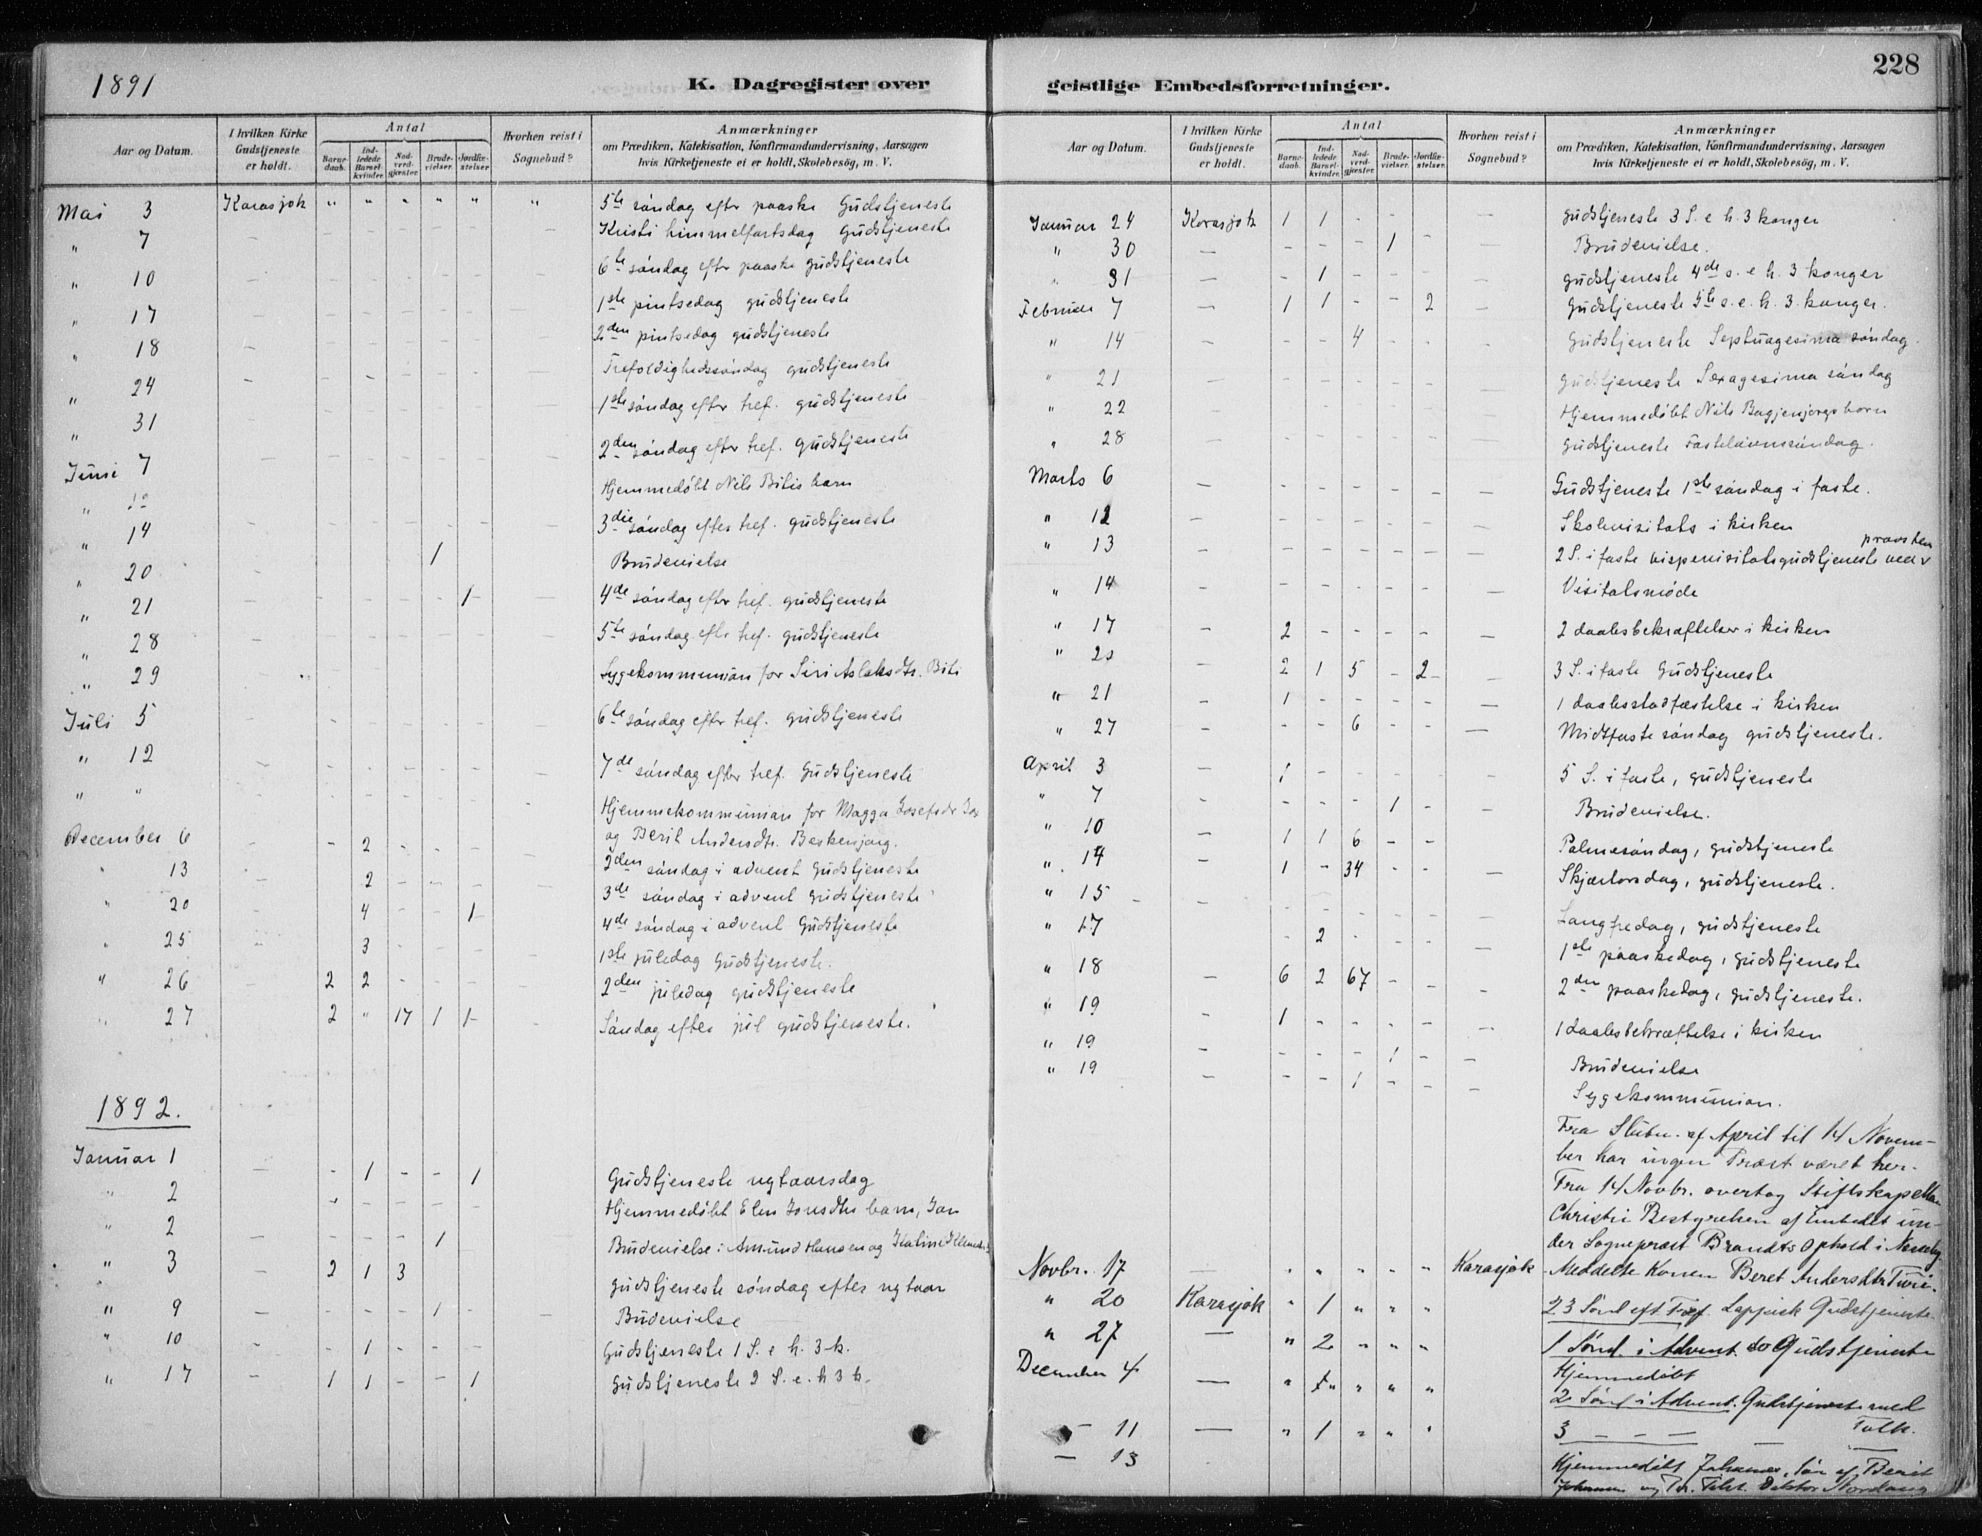 1891
K. Dagregister over
Aar og Datum.
I hvilken Kirke Gudstjeneste er holdt.
Antal
Barnedaab.
Indledede Barselkvinder.
Nadverdgjæster.
Brudevielser.
Jordfæstelser.
Hvorhen reist i Sognebud?
Anmærkninger
om Prædiken, Katekisation, Konfirmandundervisning, Aarsagen
hvis Kirketjeneste ei er holdt, Skolebesøg, m. V.
Mai 3 Karasjok " " " " " " 5te søndag efter paaske Gudstjeneste
" 7 — Kristi himmelfartsdag Gudstjeneste
" 10 — 6te søndag efter paaske gudstjeneste
" 17 — 1ste pintsedag gudstjeneste
" 18 — 2den pintsedag gudstjeneste
" 24 — Trefoldighedssøndag gudstjeneste
" 31 — 1ste søndag efter tref. gudstjeneste
Juni 7 — 2den søndag efter tref. gudstjeneste
" Hjemmedøbt Nils Bitis barn
" 14 — 3die søndag efter tref. gudstjeneste
" 20 — 1 Brudevielse
" 21 — 1 4de søndag efter tref. gudstjeneste
" 28 — 5te søndag eftr tref. gudstjeneste
" 29 — Sygekommunion for Siri Aslaksdtr. Biti
Juli 5 — 6te søndag efter tref. gudstjeneste
" 12 — 7de søndag efter tref. Gudstjeneste
" " Hjemmekommunion for Magga Josefsdr
og Berit Andersdtr.
December 6 — 2 2den søndag i advent Gudstjeneste
" 13 — 2 3de søndag i advent gudstjeneste
" 20 — 4 1 4de søndag i advent Gudstjeneste
" 25 — 3 1ste juledag Gudstjeneste.
" 26 — 2 2 2den juledag gudstjeneste
" 27 — 2 " 17 1 1 Søndag efter jul gudstjeneste.
1892.
Januar 1 — 1 1 Gudstjeneste nytaarsdag
" 2 Hjemmedøbt Elen Jonsdtrs barn, Jon
" 2 — 1 Brudevielse: Amund Hansen og
" 3 — 2 1 3 gudstjeneste søndag efter nytaar
" 9 — 1 Brudevielse
" 10 — 1 Gudstjeneste 1 S. e h. 3 k.
" 17 — 1 1 1 gudstjeneste 2 S. e. h 3 k.
geistlige Embedsforretninger.
228
Aar og Datum.
I hvilken Kirke Gudstjeneste er holdt.
Antal
Barnedaab.
Indledede Barselkvinder.
Nadverdgjæster.
Brudevielser.
Jordfæstelser.
Hvorhen reist i Sognebud?
Anmærkninger
om Prædiken, Katekisation, Konfirmandundervisning, Aarsagen
hvis Kirketjeneste ei er holdt, Skolebesøg, m. V.
Januar 24 Karasjok 1 1 gudstjeneste 3 S. e h. 3 konger
" 30 — 1 Brudevielse.
" 31 — 1 gudstjeneste 4de s. e h. 3 konger
Februar 7 — 1 1 2 gudstjeneste 5te s. e. h. 3 konger.
" 14 — 4 gudstjeneste Septuagesima søndag.
" 21 — gudstjeneste Sexagesima søndag
" 22 — Hjemmedøbt Nils barn
" 28 — gudstjeneste Fastelavnssøndag.
Marts 6 — Gudstjeneste 1ste søndag i faste.
" 12 — Skolevisitats i kirken
" 13 — 2 S. i faste bispevisitatsgudstjeneste ved provsten
" 14 Visitatsmøde
" 17 — 2 2 daabsbekræftelser i kirken
" 20 2 1 5 2 3 S. i faste Gudstjeneste
" 21 — 1 1 daabsstadfæstelse i kirken
" 27 — 6 Midtfaste søndag gudstjeneste.
April 3 — 1 5 S. i faste, gudstjeneste
" 7 — 1 Brudevielse.
" 10 — 1 1 6 Palmesøndag, gudstjeneste
" 14 1 34 Skjærtorsdag, gudstjeneste.
" 15 — Langfredag, gudstjeneste
" 17 2 1ste paaskedag, gudstjeneste
" 18 — 6 2 67 2den paaskedag, gudstjeneste.
" 19 — 1 1 daabsbekræftelse i kirken
" 19 — 1 Brudevielse
" 19 — 1 Sygekommunion.
Fra Slutn. af April til 14 Novem-
ber har ingen Præst været her.
Fra 14 Novbr. overtog Stiftskapellan
Christie Bestyrelsen af Embedet un-
der Sogneprest Brandts Ophold i Nesseby
Novbr. 17 — " " " " Karasjok Meddelte Konen Beret Andersdtr
" 20 Karasjok " 1 " " " 23 Sønd eft Tref. Lappisk Gudstjeneste
" 27 — " 2 " " " 1 Sønd. i Advent do Gudstjeneste
Hjemmedøbt
December 4 — " " " " 2 Sønd i Advent. Gudstjenest med
Tolk.
— 11 — " 1 " " " 3 — — — —
— 13 Hjemmedøbt Johannes, Søn af Berit